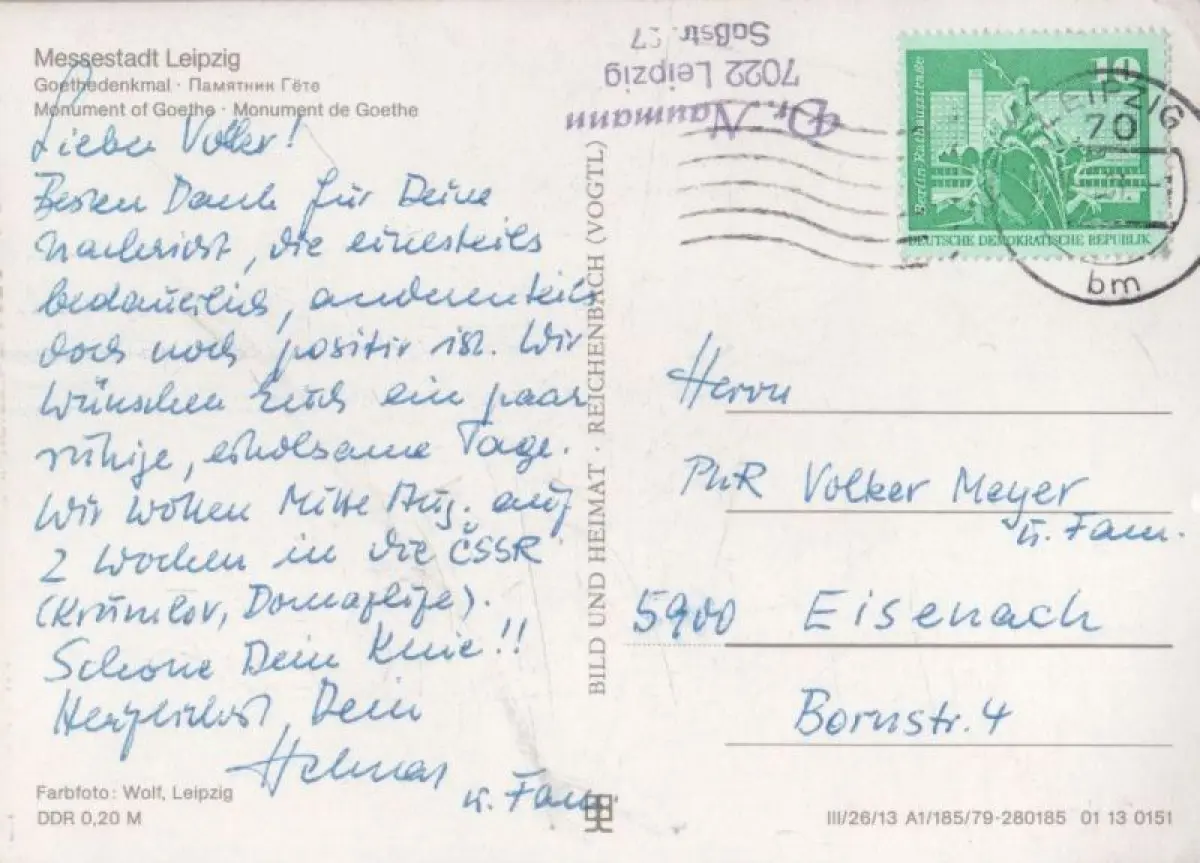 Messestadt Leipzig
Goethedenkmal · Памятник Гёте
Monument of Goethe · Monument de Goethe
Lieber Volker!
Besten Dank für Deine
Nachricht, die einesteils
bedauerlich, anderenteils
doch noch positiv ist. Wir
wünschen Euch ein paar
ruhige, erholsame Tage.
Wir wollen Mitte Aug. auf
2 Wochen in die ČSSR
(Krumlov, Domažlize).
Schone Dein Knie!!
Herzlichst, Dein
Helmar
u. Fam.
Farbfoto: Wolf, Leipzig
DDR 0,20 M
BILD UND HEIMAT · REICHENBACH (VOGTL)
Dr. Naumann
7022 Leipzig
Saßstr. 27
10
Berlin, Rathausstraße
DEUTSCHE DEMOKRATISCHE REPUBLIK
LEIPZIG
70
bm
Herrn
PhR Volker Meyer
u. Fam.
5900 Eisenach
Bornstr. 4
III/26/13 A1/185/79-280185 01 13 0151